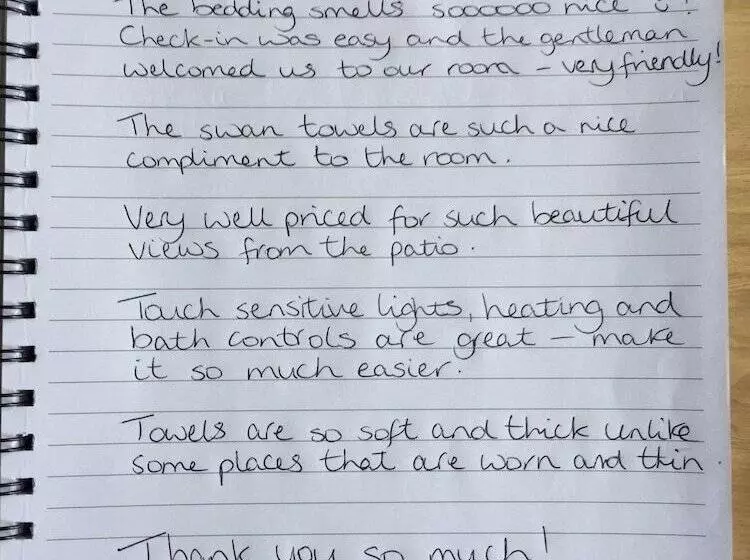 The bedding smells soooooo nice ☺!
Check-in was easy and the gentleman
welcomed us to our room – very friendly!
The swan towels are such a nice
compliment to the room.
Very well priced for such beautiful
views from the patio.
Touch sensitive lights, heating and
bath controls are great – make
it so much easier.
Towels are so soft and thick unlike
some places that are worn and thin.
Thank you so much!